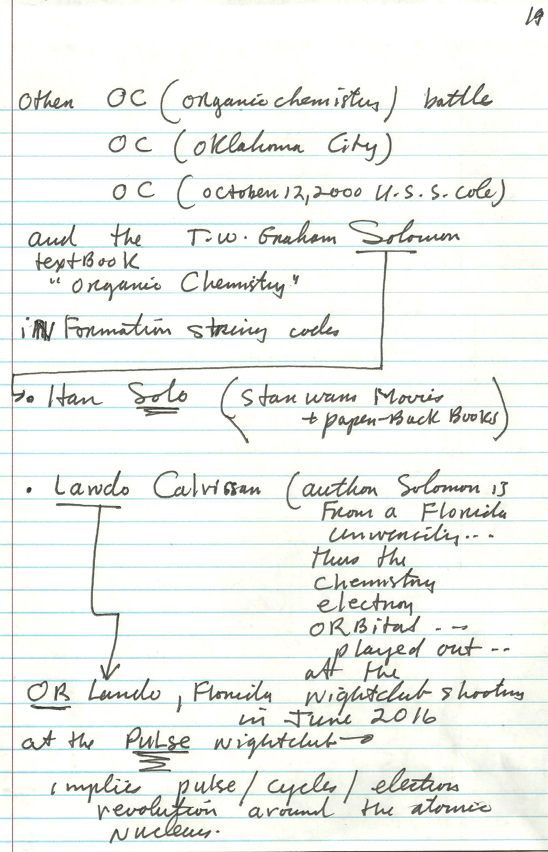 19
Other OC (organic chemistry) battle
OC (Oklahoma City)
OC (October 12, 2000 U.S.S. Cole)
and the T.W. Graham Solomon
textBook
"Organic Chemistry"
iN Formation string codes
• Han Solo (Star wars Movies
+ paper-Back Books)
• Lando Calrissan (author Solomon is
From a Florida
University...
thus the
Chemistry
electron
ORBital ---
played out --
at the
OR Lando, Florida nightclub shooting
in June 2016
at the PULSE nightclub →
implies pulse/cycles/electron
revolution around the atomic
nucleus.